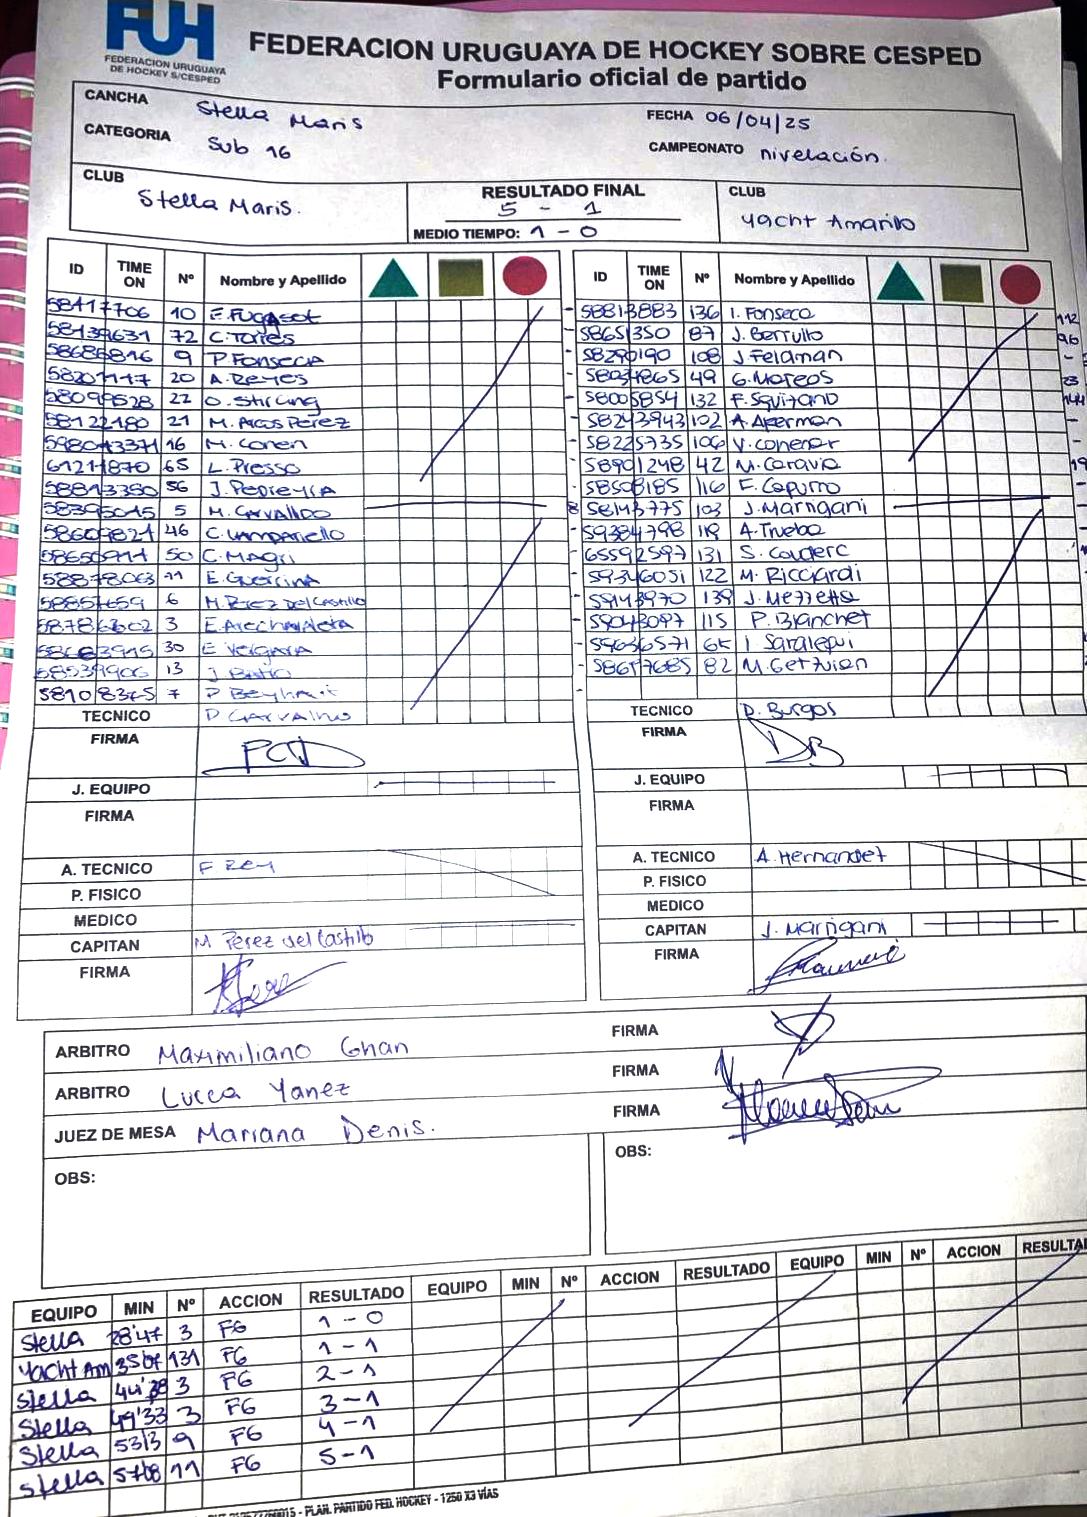 FUH
FEDERACION URUGUAYA
DE HOCKEY S/CESPED
FEDERACION URUGUAYA DE HOCKEY SOBRE CESPED
Formulario oficial de partido
CANCHA Stella Maris
FECHA 06/04/25
CATEGORIA Sub 16
CAMPEONATO nivelación.
CLUB Stella Maris.
RESULTADO FINAL 5 - 1
MEDIO TIEMPO: 1 - 0
CLUB Yacht Amarillo
ID TIME ON Nº Nombre y Apellido
10 E. Fugasot
72 C. Torres
58685816 9 P. Fonseca
20 A. Reyes
58099528 22 O. Stirling
58122180 21 M. Arcos Perez
16 M. Conen
65 L. Presso
56 J. Pedreyra
58395015 5 M. Carvallido
46 C. Lampariello
50 C. Magri
11 E. Guercina
6 M. Perez Del Castillo
3 E. Arechavaleta
30 E Vergara
58539906 13
7 P Beyhaut
TECNICO P Carvalho
FIRMA
J. EQUIPO
FIRMA
A. TECNICO F Rey
P. FISICO
MEDICO
CAPITAN M Perez del Castillo
FIRMA
ID TIME ON Nº Nombre y Apellido
58813883 136 I. Fonseca
58651350 87 J. Berrullo
58290190 108 J. Feldman
58034865 49 G. Mateos
58005854 132 F. Squitano
58243943 102 A. Akerman
58225735 106 V. Conener
58901248 42 M. Caravia
58508185 116 F. Capurro
58143775 103 J. Marrigani
59384798 119 A. Trueba
65592597 131 S. Couderc
59346051 122 M. Ricciardi
59143970 139 J. Mezzetta
59043097 115 P. Blanchet
59636571 65 I Saralegui
58617685 82 M. Getzuian
TECNICO D. Burgos
FIRMA DB
J. EQUIPO
FIRMA
A. TECNICO A. Hernandez
P. FISICO
MEDICO
CAPITAN J. Marrigani
FIRMA
ARBITRO Maximiliano Ghan FIRMA
ARBITRO Lucca Yanez FIRMA
JUEZ DE MESA Mariana Denis. FIRMA
OBS:
OBS:
EQUIPO MIN Nº ACCION RESULTADO EQUIPO MIN Nº ACCION RESULTADO EQUIPO MIN Nº ACCION RESULTA
Stella 28'47 3 FG 1 - 0
Yacht Am 131 FG 1 - 1
Stella 44'38 3 FG 2 - 1
Stella 49'33 3 FG 3 - 1
Stella 53'13 9 FG 4 - 1
Stella 11 FG 5 - 1
- PLAN. PARTIDO FED. HOCKEY - 1250 X3 VÍAS